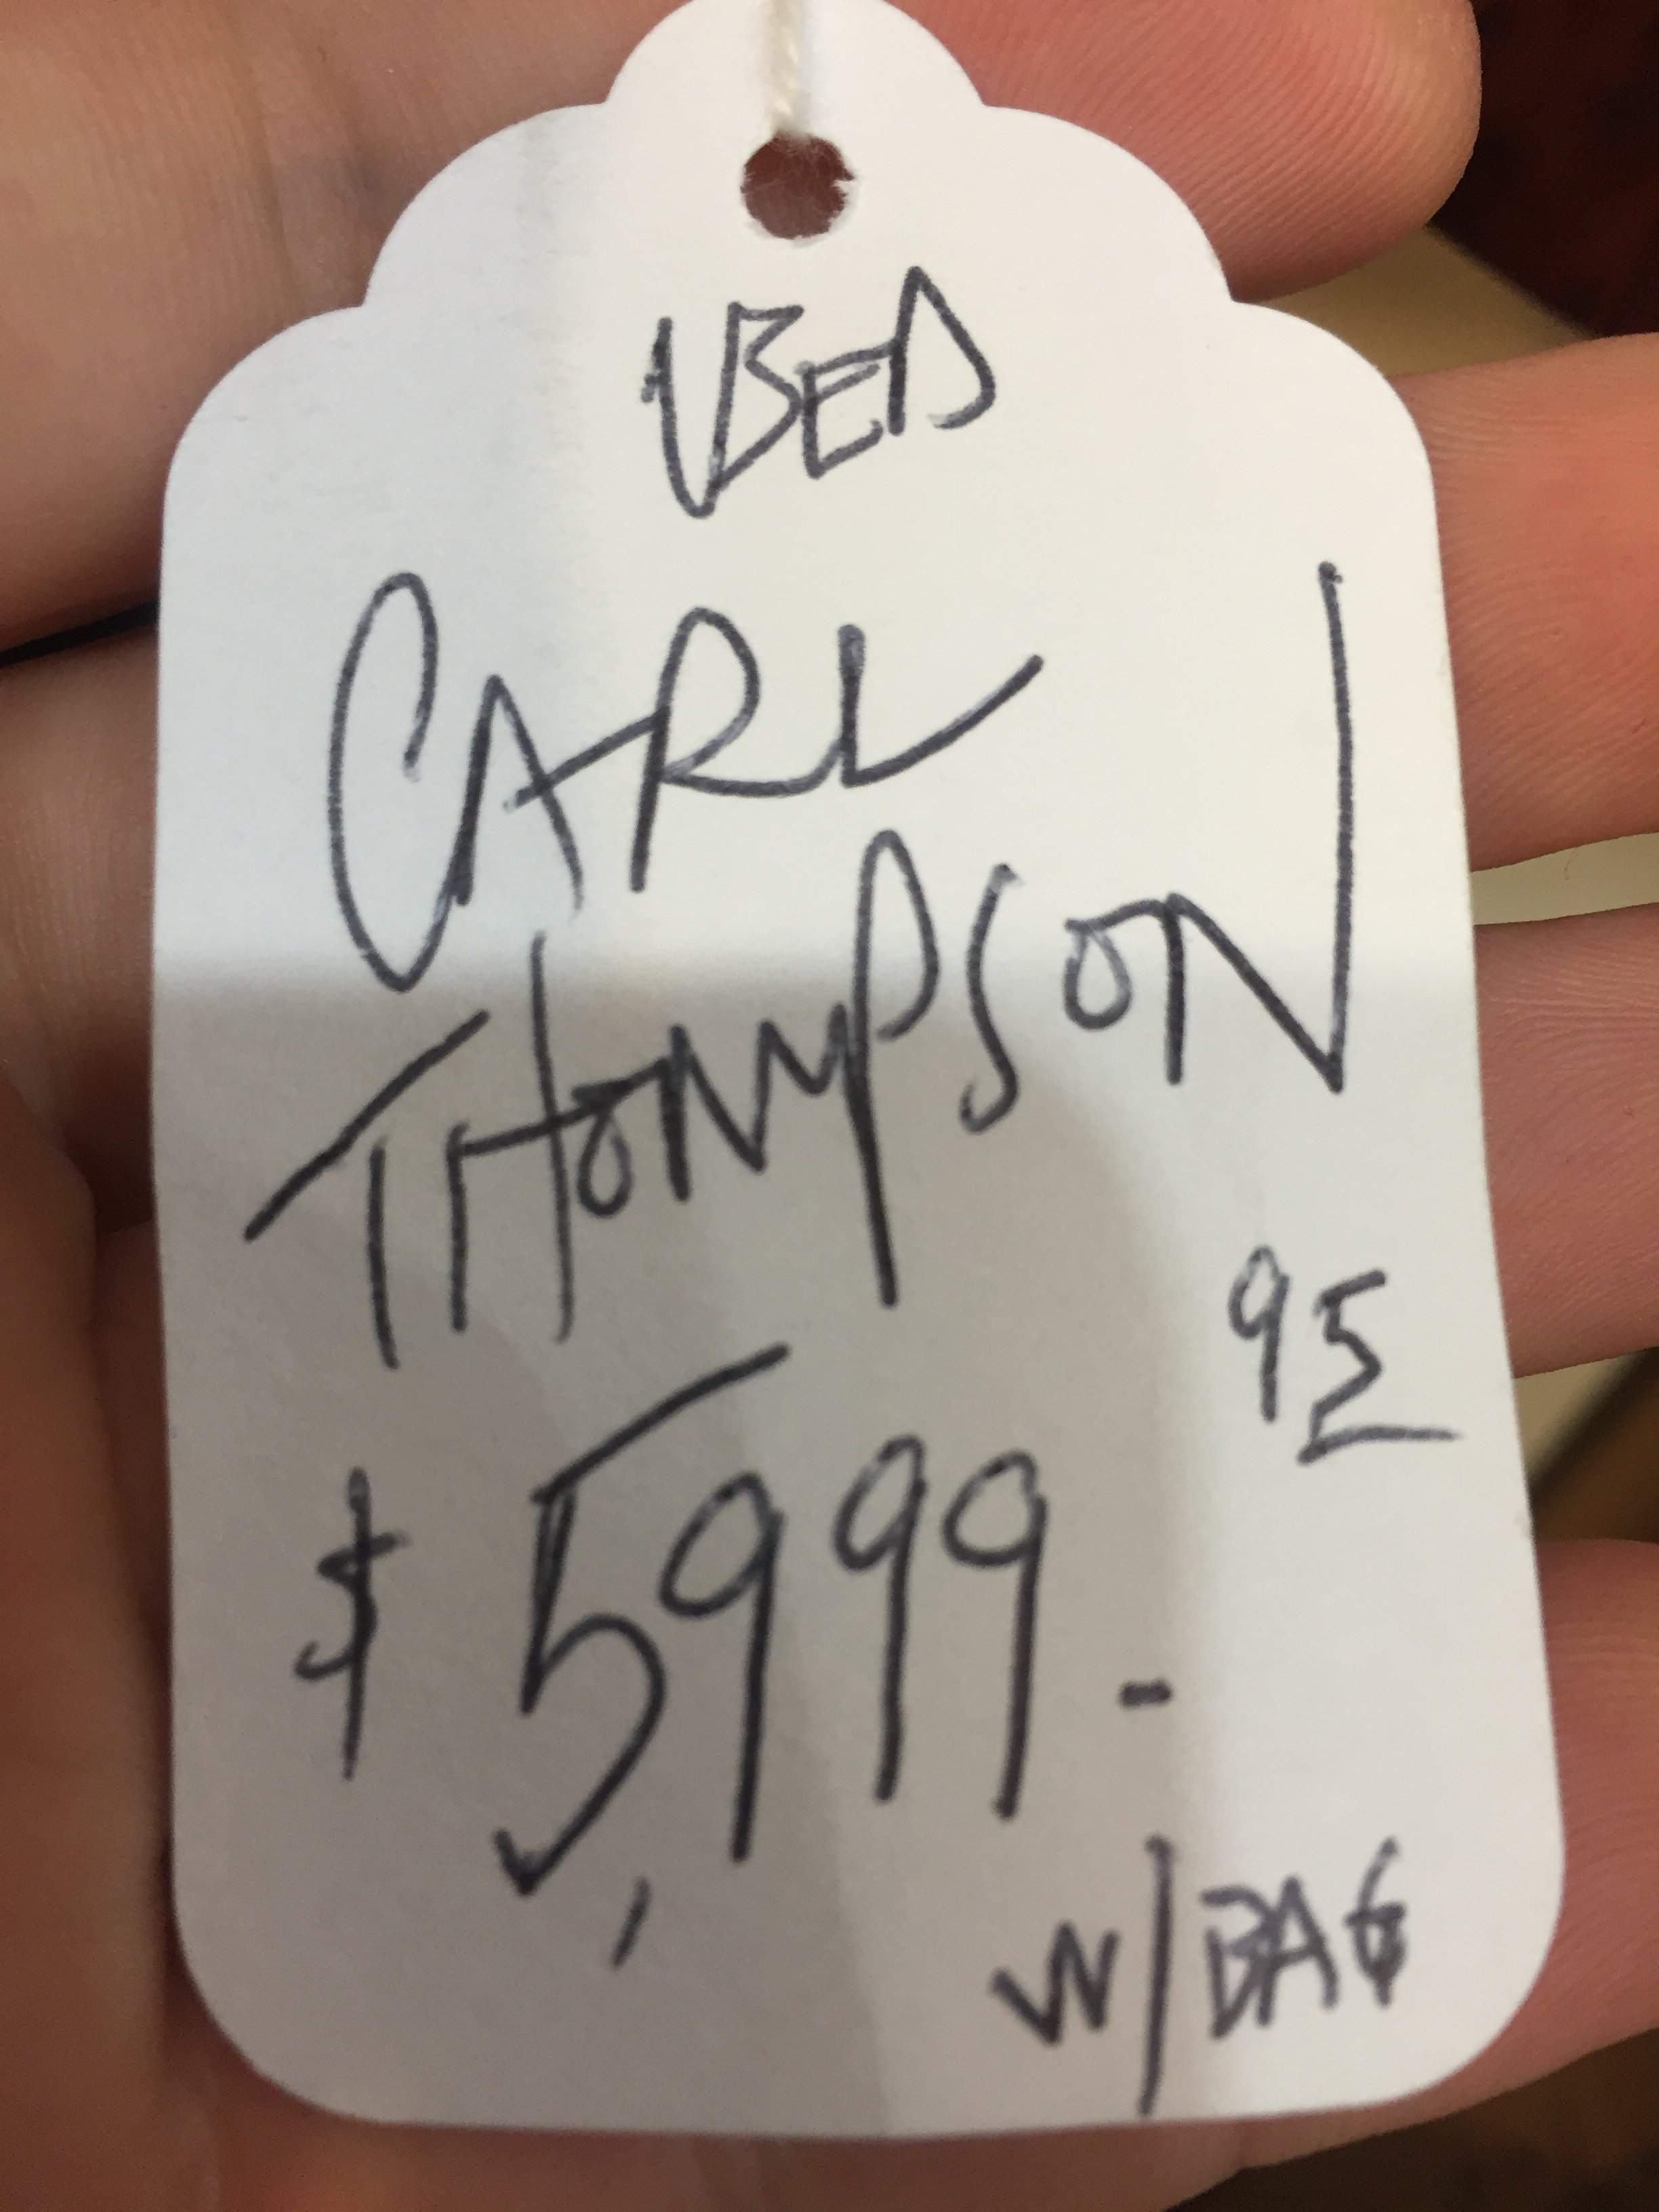 USED
CARL
THOMPSON
95
$5,999-
W/BAG